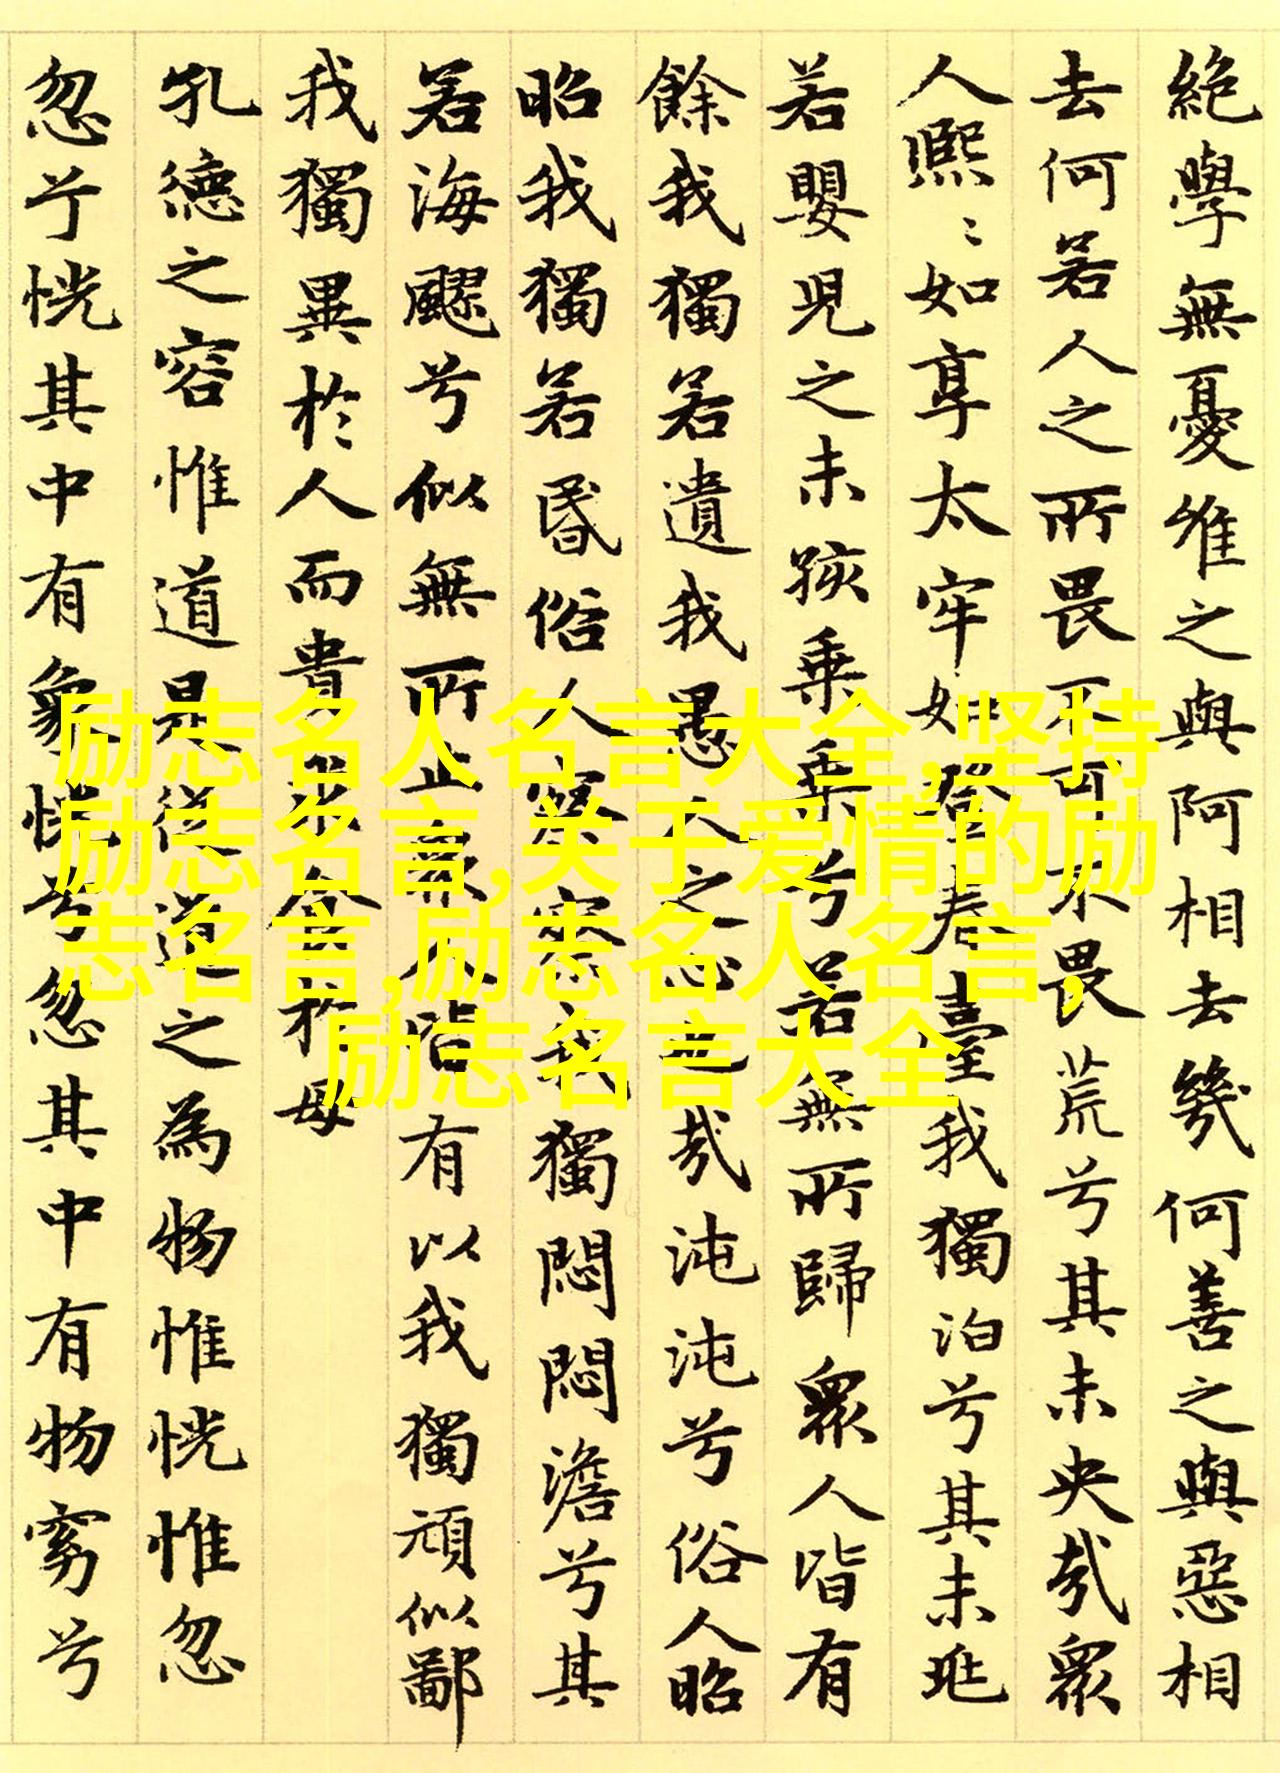 絶學無憂唯之與阿相去幾何善之與惡相
去何若人之所畏不可不畏荒兮其未央哉眾
人熙〻如享太牢如登春臺我獨泊兮其未兆
若嬰兒之未孩乘乘兮若無所歸眾人皆有
餘我獨若遺我愚人之心也哉沌沌兮俗人昭
昭我獨若昏俗人察察我獨悶悶澹兮其
若海飂兮似無所止眾人皆有以我獨頑似鄙
我獨異於人而貴求食於母
孔德之容惟道是從道之為物惟恍惟忽
忽兮恍其中有象恍兮忽其中有物窈兮
励志名人名言大全,坚持
励志名言,关于爱情的励
志名言,励志名人名言,
励志名言大全